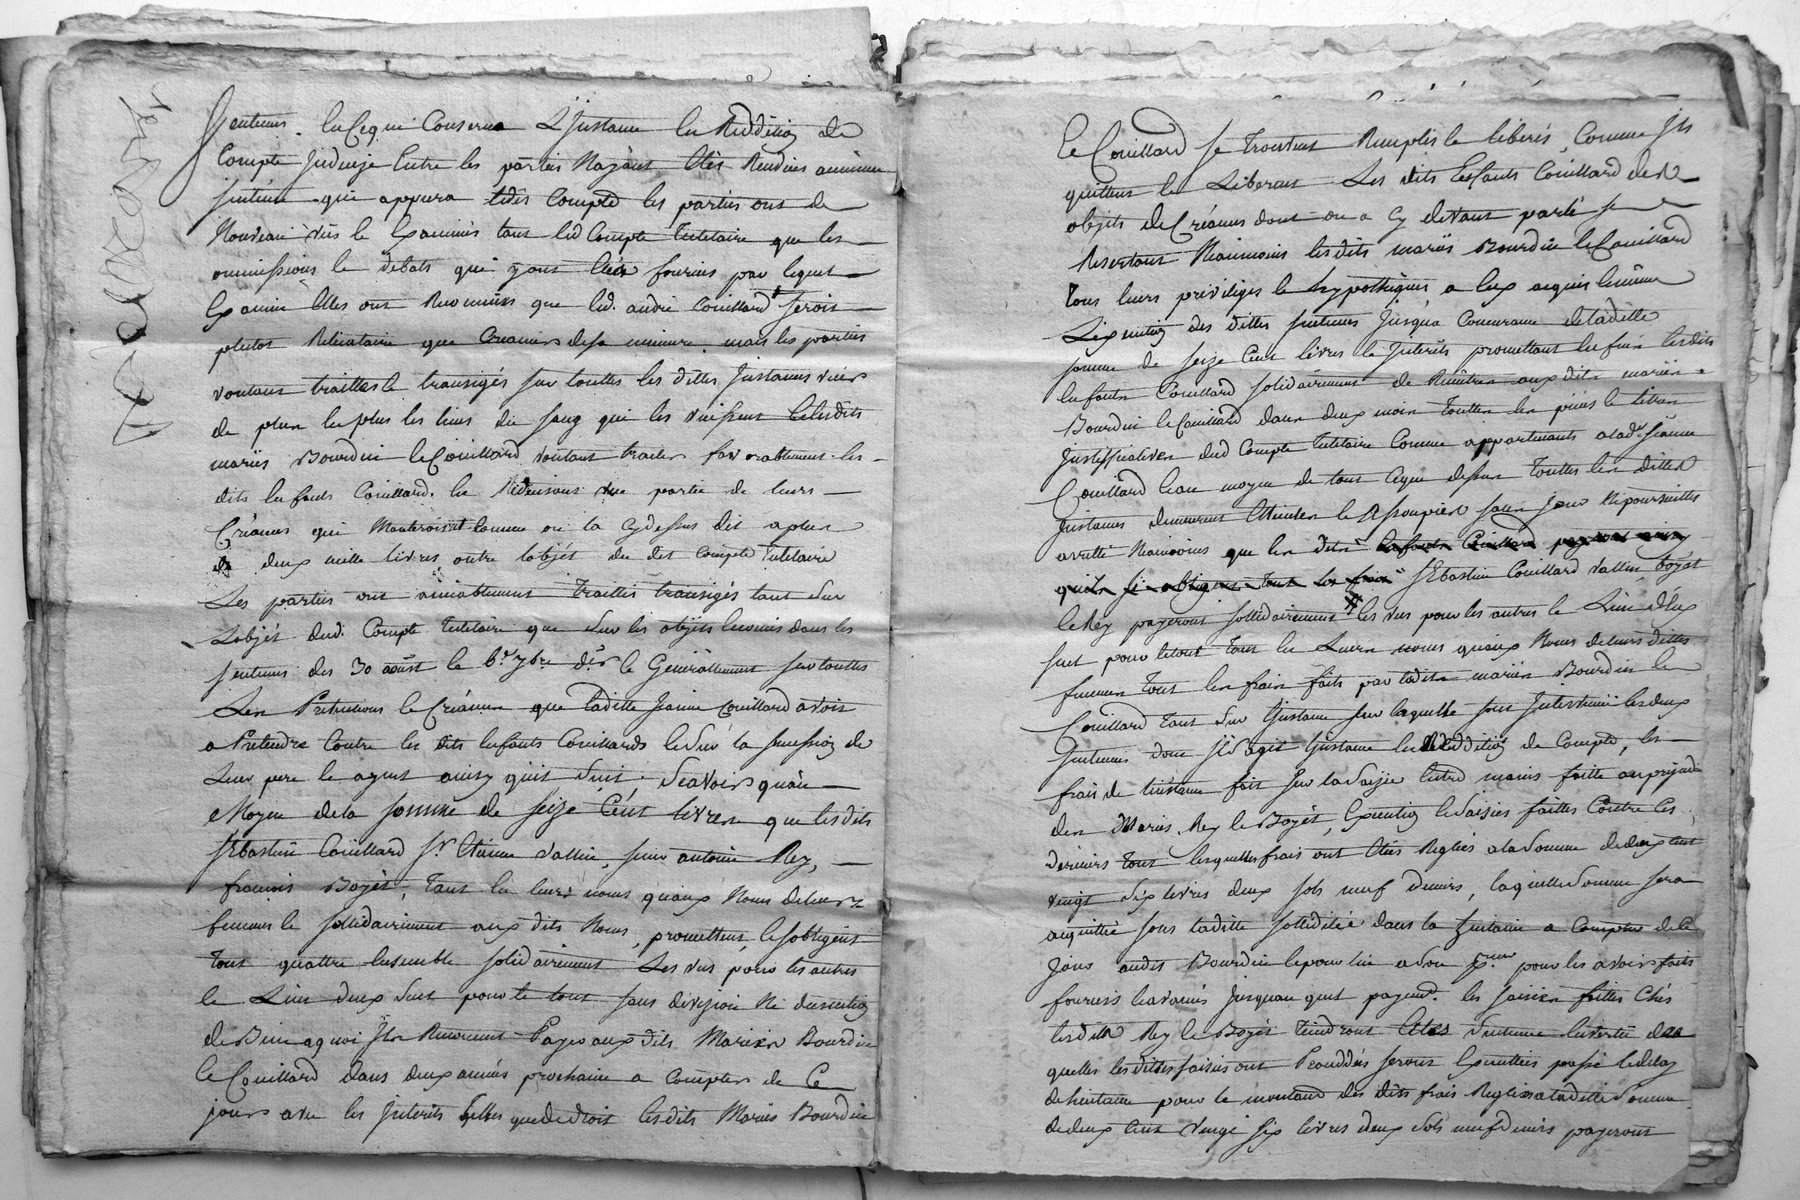 sentences. en ce qui Conserne L'jnstance en Reddition de
Compte jusqu'a Entre les parties N'ayant Etés Rendues aucune
sentence qui appura ledit Compte les parties ont de
Nouveau vus et Examinés tant led Compte Tutelaire que les
ommissions et debats qui y ont Etés fournis par lequel
Examin Elles ont Reconnües que led. andré Couillard seroit
plutot Reliquataire que Creancier de sa mineure. mais les parties
voulant traitter et transiger sur touttes les dittes jnstances unir
de plus en plus les liens du sang qui les unissent Et lesdits
mariés Bourdin et Couillard voulant traiter favorablement les
dits Enfants Couillard. en Reduisant une partie de leurs
Créances qui Monteroint comme on la cy dessus dit a plus
de deux mille livres outre lobjét du dit compte Tutelaire
Les parties ont aimablement Traittés transigés tant Sur
Lobjét dud. Compte Tutelaire que Sur les objéts Enoncés dans les
sentences des 30 aoust et 6e 7bre dér et Generallement sur touttes
Les Pretentions et Créances que ladite Jeanne Couillard avoit
a Pretendre Contre les dits Enfants Couillards et Sur la succession de
Leur pere le agust ainsy quil Suit. Scavoir quau
Moyen de la somme de seize Cent livres que lesdits
Sébastien Couillard Sr. Etienne Vallin, sieur antoine Rey,
francois Boyét, Tant en leurs noms quaux Noms de leurs
femmes et sollidairement aux dits Noms, promettent et sobligent
Tous quattre Ensemble solidairement Les uns pour les autres
et Lun deux Seul pour le tout sans division Ni discution
de Biens a quoi jls Renoncent Payer aux dits Mariés Bourdin
et Couillard dans deux années prochaine a compter de Ce
jour avec les jnterets telles que de droit lesdits Mariés Bourdin
Et Couillard se Trouvent Remplis et liberés, Comme jls
quittent et Liberent Les dits Enfants Couillard des
objéts de Créances dont on a cy devant parlé se
Reservant Neanmoins lesdits mariés Bourdin et Couillard
Tous leurs priviléges et hypothéques a Eux acquis Comme
L'exécution des dittes sentences jusqu'a Concurrance de ladite
somme de seize Cent livres et jnteréts promettant Enfin lesdits
Enfants Couillard solidairement de Remettre aux dits mariés
Bourdin et Couillard dans deux mois Touttes les piéces et titres
justifficatives dud Compte Tutelaire Comme appartenants a lade Jeanne
Couillard Et au moyen de tout Ceque dessus Touttes les dittes
jnstances demeurent Eteintes et assoupies sans jour Ni poursuittes
arretté Neanmoins que les dits Enfants Couillard
quils si obligent Tous les frais Sébastien Couillard Vallin boyét
et Réy payeront sollidairement les uns pour les autres et Lun d'Eux
seul pour le tout Tant En Leurs noms quaux Noms de leurs dittes
femmes Tous les frais faits par lesdits mariés Bourdin et
Couillard Tant Sur L'jnstance sur laquelle sont jntervenü les deux
sentences dont jl Sagit jnstance en Reddition de Compte, les
frais de L'instance fait sur la Saizie Entre mains faitte au prejudice
des Mariés Rey et Boyét, Execution et Saisies faittes Contre Ces
derniers tous lesquelles frais ont Etés Reglés a la Somme de deux Cent
vingt Six livres deux sols neuf deniers, laquelle Somme sera
acquittée sous laditte sollidité dans la huitaine a Compter de ce
jour audit Bourdin et pour lui a Son pr.eur pour les avoir faits
fournis et avancés jusquau quel payemt. les saisies faittes Chés
lesdits Rey et Boyét Tiendront Etat Sentence En vertü des
quelles les dittes saisies ont Procédées seront Executées passé led delay
de huitaine pour le montant des dits frais Reglés a laditte Somme
de deux Cent vingt six livres deux Sols neuf deniers payeront